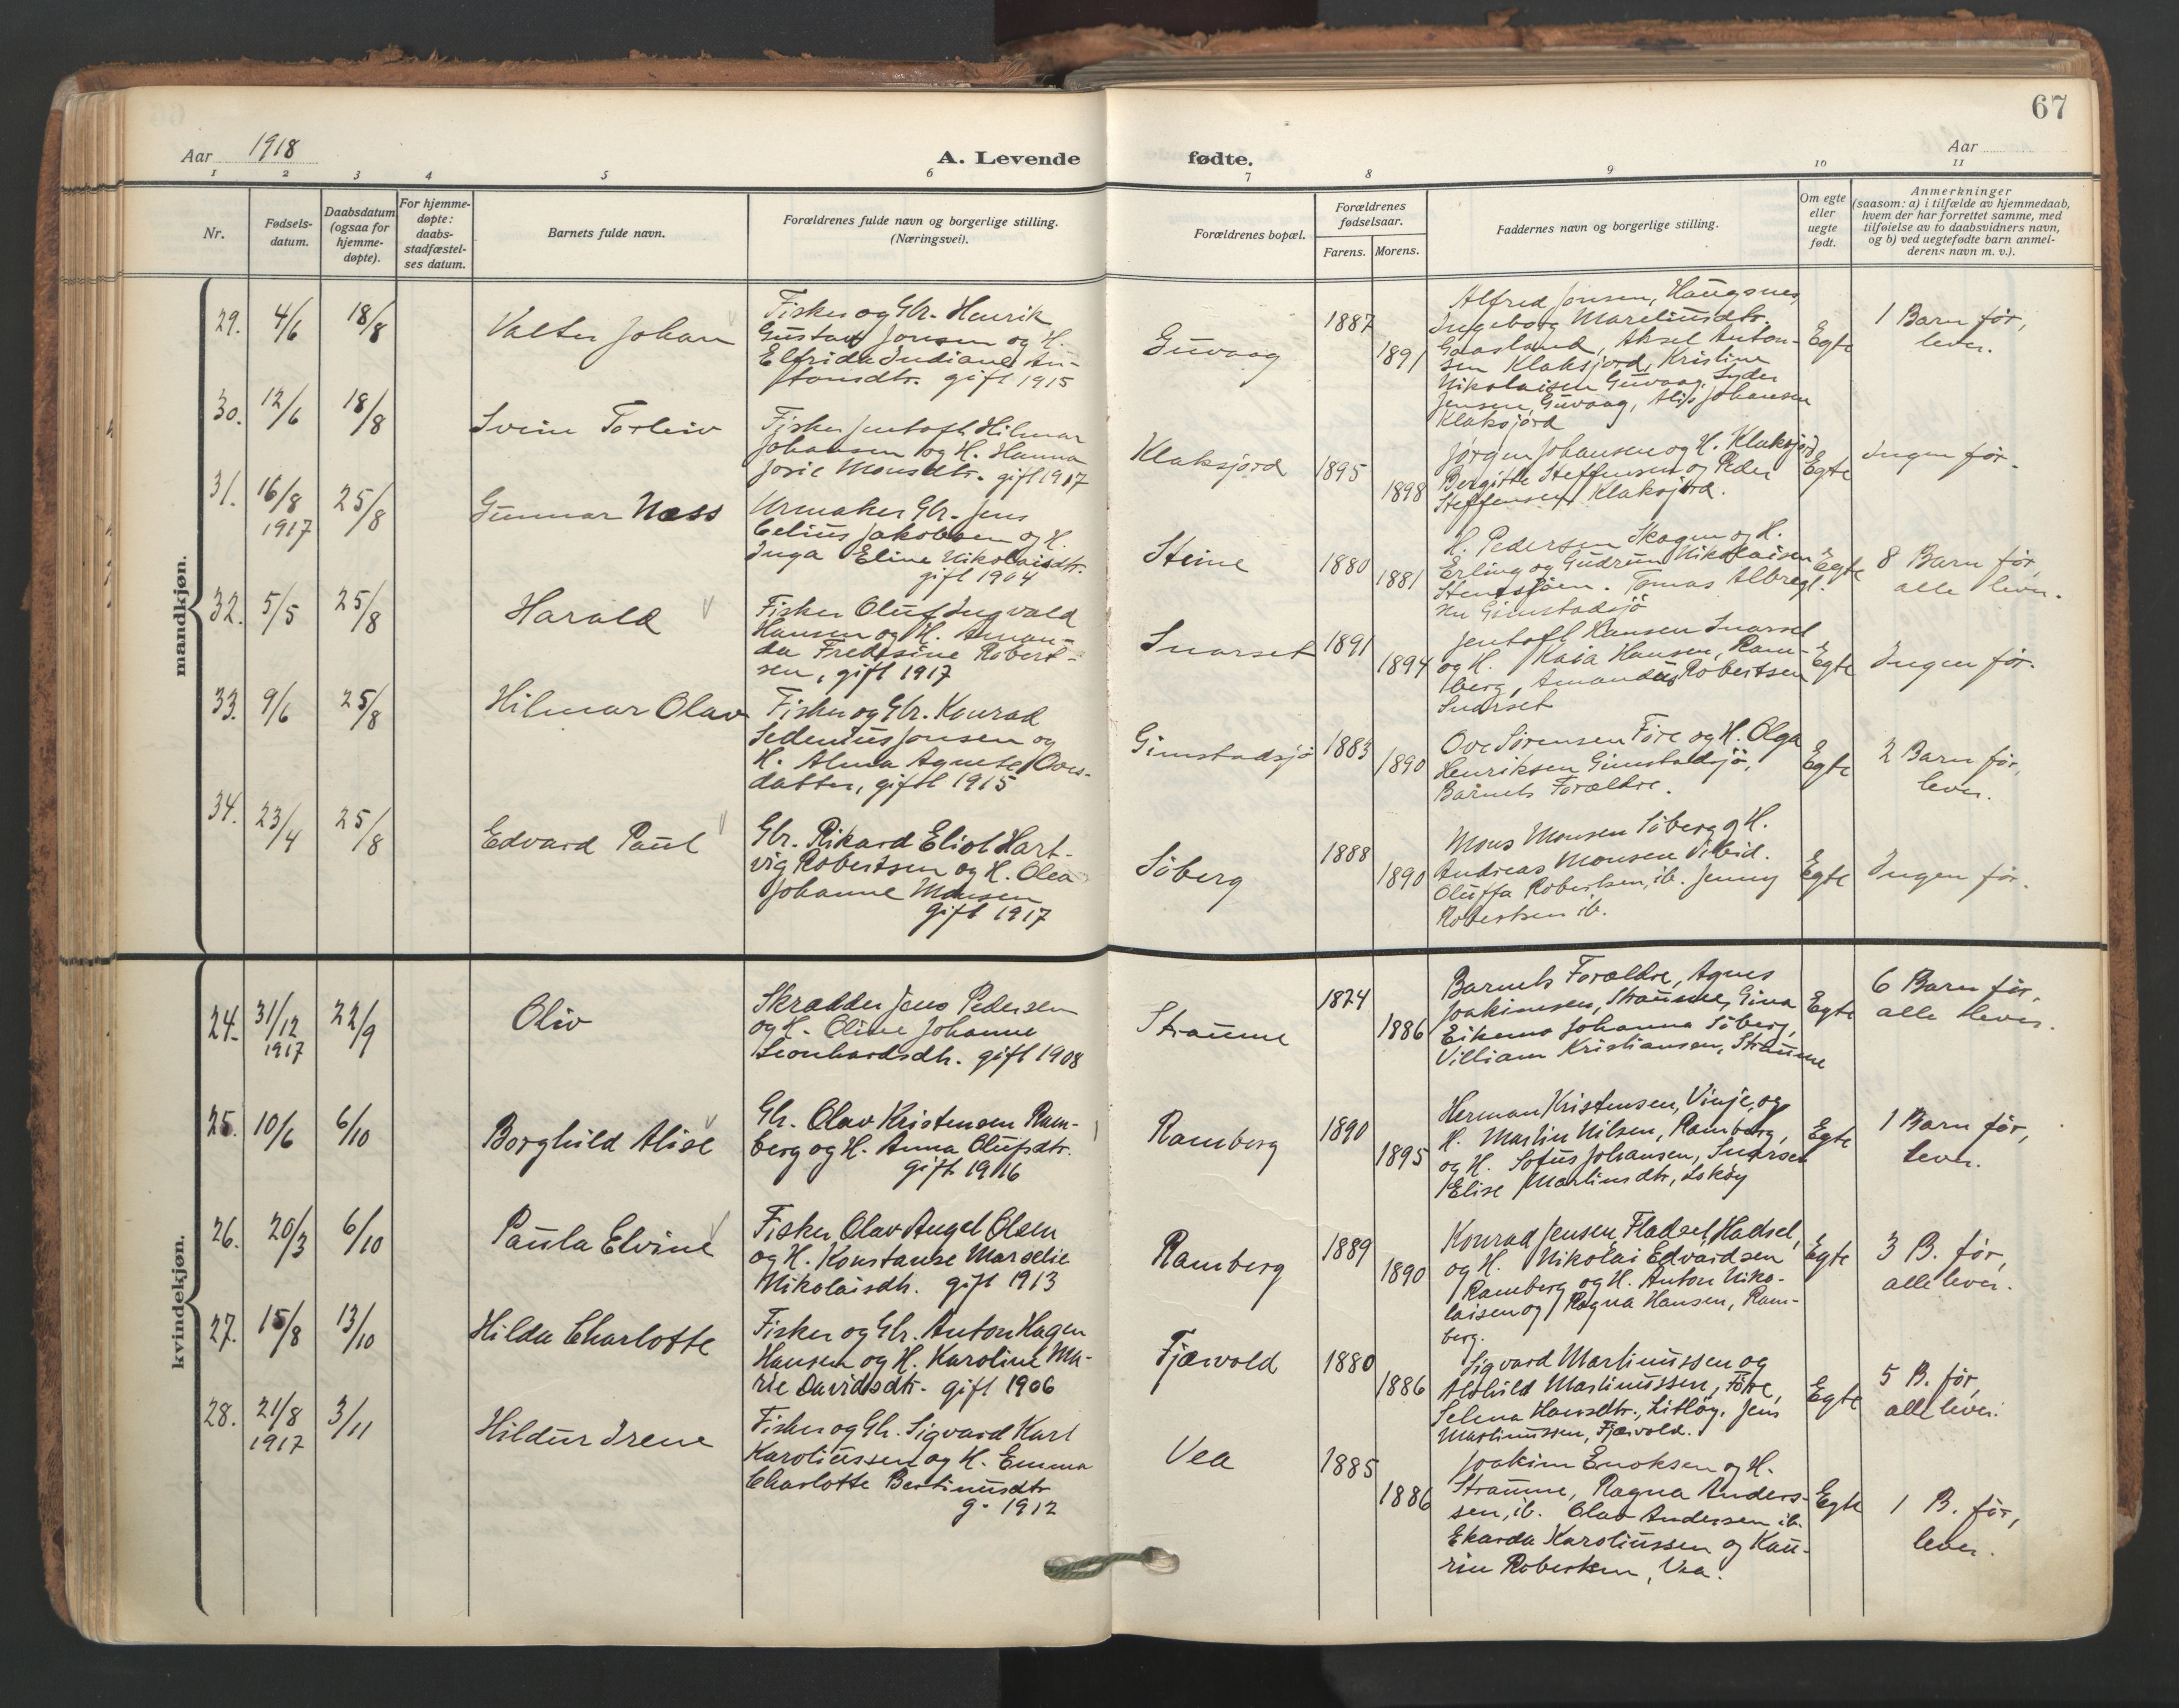 67
Aar 1918
A. Levende fødte.
Aar
1 2 3 4 5 6 7 8 9 10 11
Nr.
Fødsels-
datum.
Daabsdatum
(ogsaa for
hjemme-
døpte).
For hjemme-
døpte:
daabs-
stadfæstel-
ses datum.
Barnets fulde navn.
Forældrenes fulde navn og borgerlige stilling.
(Næringsvei).
Forældrenes bopæl.
Forældrenes
fødselsaar.
Farens. Morens.
Faddernes navn og borgerlige stilling.
Om egte
eller
uegte
født.
Anmerkninger
(saasom: a) i tilfælde av hjemmedaab,
hvem der har forrettet samme, med
tilføielse av to daabsvidners navn,
og b) ved uegtefødte barn anmel-
derens navn m. v.).
mandkjøn.
29. 4/6 18/8 Valter Johan
Fisker og Gbr. Henrik
Gustav Jonsen og H.
Elfrida Indiane An-
tonsdtr. gift 1915
Guvaag 1887 1891
Alfred Jonsen, Haugsnes
Ingeborg Mareliusdtr.
Gaasland, Aksel Anton-
sen Klaksjord, Kristine
Nikolaisen Guvaag,
Jensen, Guvaag, Johansen
Klaksjord
Egte
1 Barn før,
lever.
30. 12/6 18/8 Svein Torleiv
Fisker Jentoft Hilmar
Johansen og H. Hanna
Josie Monsdtr. gift 1917
Klaksjord 1895 1898
Jørgen Johansen og H. Klaksjord
Bergitte Steffensen og Peder
Steffensen Klaksjord.
Egte
Ingen før.
31. 16/8 1917 25/8 Gunnar Næss
Urmaker Gbr. Jens
Celius Jakobsen og H.
Inga Eline Nikolaisdtr.
gift 1904
Steine 1880 1881
H. Pedersen Skagen og H.
Erling og Gudrun Nikolaisen
Stenesjøen. Tomas Albregt-
sen Gimstadsjø
Egte
8 Barn før,
alle lever.
32. 5/5 25/8 Harald
Fisker Oluf Ingvald
Hansen og H. Aman-
da Fredrsine Robert-
sen, gift 1917
Snarset 1891 1894
Jentoft Hansen Snarset
og H. Kaia Hansen, Ram-
berg, Amandus Robertsen
Snarset
Egte
Ingen før.
33. 9/6 25/8 Hilmar Olav
Fisker og Gbr. Konrad
Sedenius Jonsen og
H. Alma Agnete Oves-
datter, gift 1915
Gimstadsjø 1883 1890
Ove Sørensen Føre og H. Olga
Henriksen Gimstadsjø,
Barnets Forældre.
Egte
2 Barn før,
lever.
34. 23/4 25/8 Edvard Paul
Gbr. Rikard Eliot Hart-
vig Robertsen og H. Olea
Johanne Monsen
gift 1917
Søberg 1888 1890
Mons Monsen Søberg og H.
Andreas Monsen ibid.
Oluffa Robertsen, ib. Jenny
Robertsen ib.
Egte
Ingen før.
kvindekjøn.
24. 31/12 1917 22/9 Oliv
Skrædder Jens Pedersen
og H. Oline Johanne
Leonhardsdtr. gift 1908
Straume 1874 1886
Barnets Forældre, Agnes
Joakimsen, Straume, Gina
Eikemo Johanna Søberg,
Villiam Kristiansen, Straume
Egte
6 Barn før,
alle lever.
25. 10/6 6/10 Borghild Alise
Gbr. Olav Kristensen Ram-
berg og H. Anna Olufsdtr.
gift 1916
Ramberg 1890 1895
Herman Kristensen, Vinje, og
H. Martin Nilsen, Ramberg,
og H. Sofus Johansen, Snarset
Elise Martinsdtr,
Egte
1 Barn før,
lever.
26. 20/3 6/10 Paula Elvine
Fisker Olav Angel Olsen
og H. Konstanse Marselie
Nikolaisdtr. gift 1913
Ramberg 1889 1890
Konrad Jensen, Fladset, Hadsel,
og H. Nikolai Edvardsen
Ramberg og H. Anton Niko-
laisen og Ragna Hansen, Ram-
berg.
Egte
3 B. før,
alle lever.
27. 15/8 13/10 Hilda Charlotte
Fisker og Gbr. Anton Hagen
Hansen og H. Karoline Ma-
rie Davidsdtr. gift 1906
Fjærvold 1880 1886
Sigvard Martinussen og
Aldhild Martinussen, Føre,
Selma Hansdtr., Litløy. Jens
Martinussen, Fjærvold.
Egte
5 B. før,
alle lever.
28. 21/8 1917 3/11 Hildur Irene
Fisker og Gbr. Sigvard Karl
Karoliussen og H. Emma
Charlotte Bertinusdtr
g. 1912
Vea 1885 1886
Joakim Enoksen og H.
Straume, Ragna Anders-
sen, ib. Olav Andersen ib.
Ekarda Karoliussen og Kau-
rin Robertsen, Vea.
Egte
1 B. før,
lever.